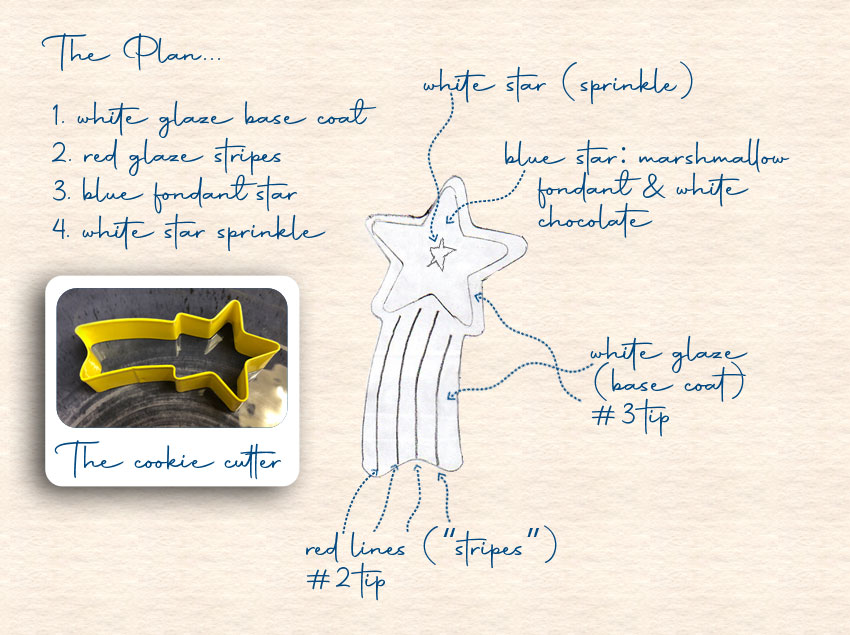 The Plan...
1. white glaze base coat
2. red glaze stripes
3. blue fondant star
4. white star sprinkle
The cookie cutter
white star (sprinkle)
blue star: marshmallow
fondant & white
chocolate
white glaze
(base coat)
#3tip
red lines ("stripes")
#2tip